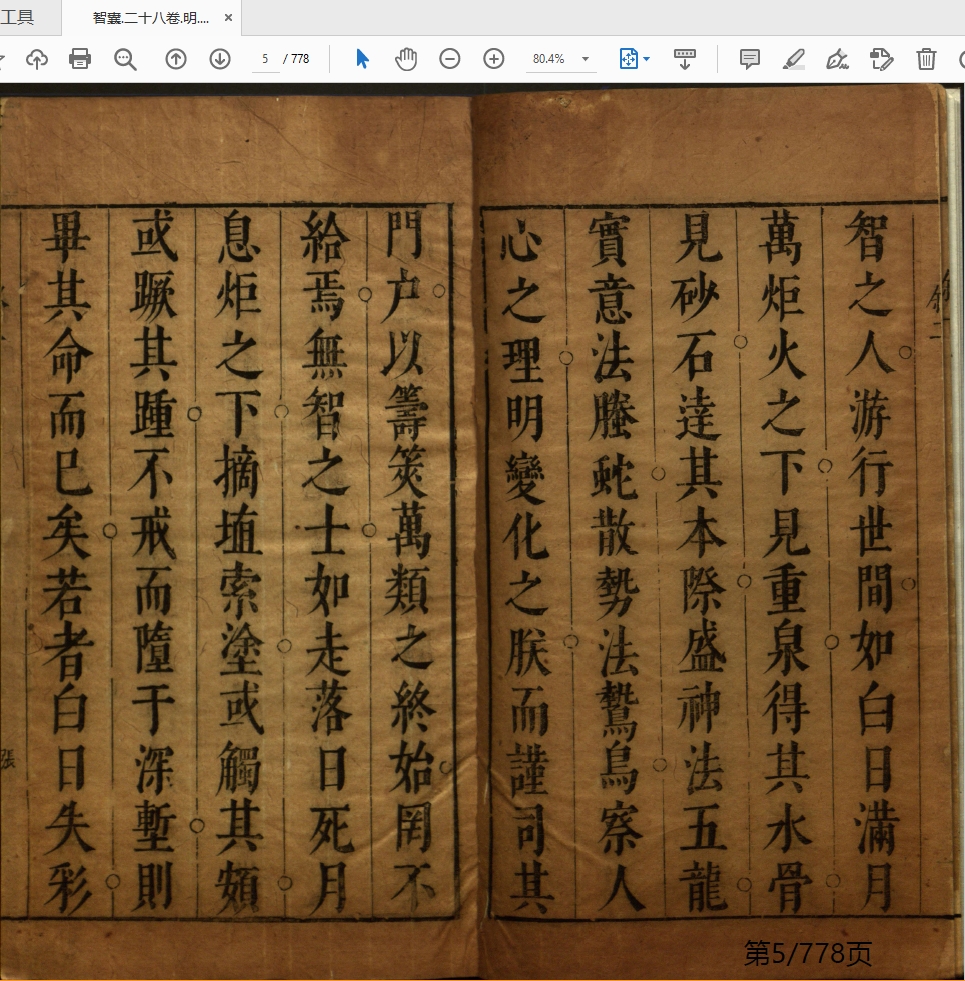 工具
智囊.二十八卷.明....
×
5 / 778
80.4%
智之人游行世間如白日滿月
萬炬火之下見重泉得其水骨
見砂石達其本際盛神法五龍
實意法螣蛇散勢法鷙鳥察人
心之理明變化之朕而謹司其
門户以籌筴萬類之終始罔不
給焉無智之士如走落日死月
息炬之下摘埴索塗或觸其頞
或蹶其踵不戒而墮于深塹則
畢其命而已矣若者白日失彩
第5/778页